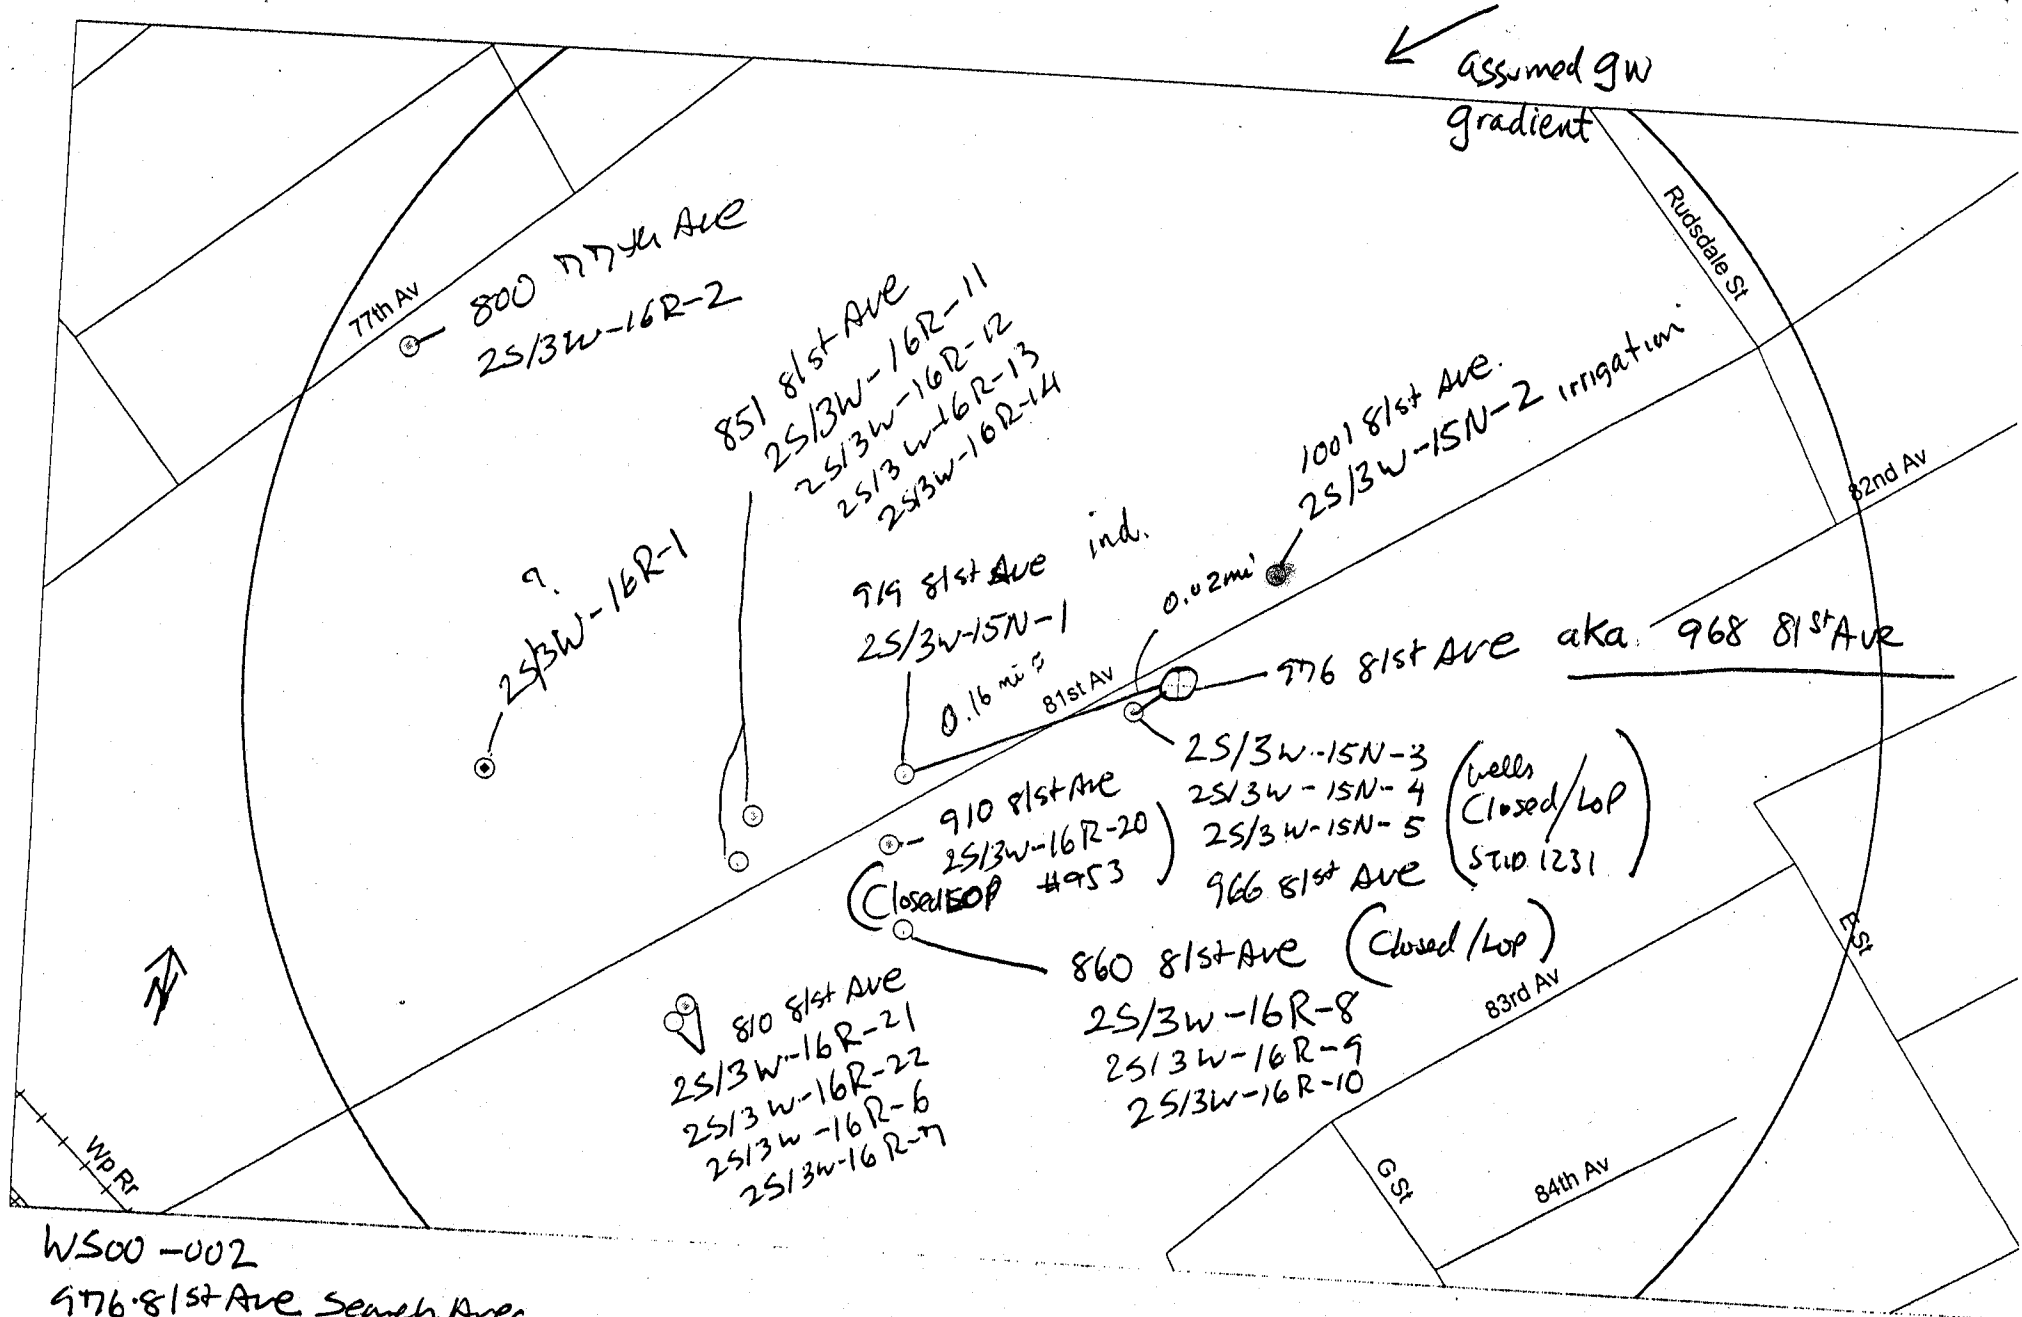 assumed gw
gradient
Rudsdale St
77th Av
800 77th Ave
2S/3W-16R-2
851 81st Ave
2S/3W-16R-11
2S/3W-16R-12
2S/3W-16R-13
2S/3W-16R-14
1001 81st Ave.
2S/3W-15N-2 irrigation
82nd Av
?
2S/3W-16R-1
919 81st Ave ind.
2S/3W-15N-1
0.16 mi
81st Av
0.02mi
976 81st Ave aka 968 81st Ave
2S/3W-15N-3
2S/3W-15N-4
2S/3W-15N-5
966 81st Ave
(wells
Closed/LOP
STID 1231)
910 81st Ave
2S/3W-16R-20
(Closed LOP #953)
860 81st Ave (Closed/LOP)
2S/3W-16R-8
2S/3W-16R-9
2S/3W-16R-10
810 81st Ave
2S/3W-16R-21
2S/3W-16R-22
2S/3W-16R-6
2S/3W-16R-7
E St
83rd Av
G St
84th Av
N
Wp Rr
WS00-002
976 81st Ave Search Area